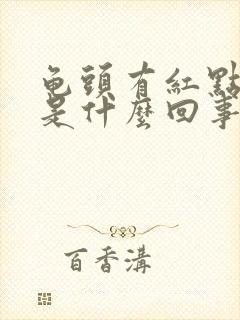 龟頭有紅點
是什麼回事
百香溝